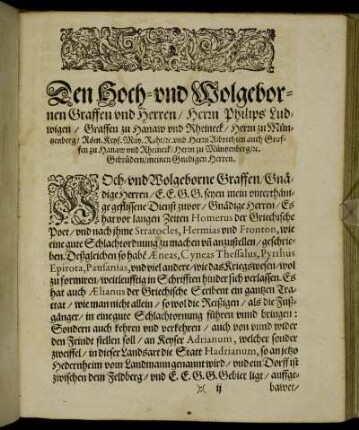 Den Hoch- vnd Wolgebor-
nen Graffen vnd Herren / Herrn Philips Lud-
wigen / Graffen zu Hanaw vnd Rheineck / Herrn zu Mün-
tzenberg / Röm. Keys. May. Raht / ꝛc. vnd Herrn Albrechten auch Graf-
fen zu Hanaw vnd Rheineck / Herrn zu Müntzenberg / ꝛc.
Gebrüdern / meinen Gnedigen Herren.
HOch- vnd Wolgeborne Graffen / Gnä-
dige Herren / E. E. G. G. seyen mein vnterthäni-
ge geflissene Dienst zuvor / Gnädige Herren / Es
hat vor langen Zeiten Homerus der Griechische
Poet / vnd nach ihme Stratocles, Hermias vnd Fronton, wie
eine gute Schlachtordnung zu machen vn̄ anzustellen / geschrie-
ben. Deßgleichen so hab̄ Æneas, Cyneas Thessalus, Pyrrhus
Epirota, Pausanias, vnd viel andere / wie das Kriegswesen / wol
zu formiren / weitleufftig in Schrifften hinder sich verlassen. Es
hat auch Ælianus der Griechische Scribent ein gantzen Tra-
ctat / wie man nicht allein / so wol die Reisigen / als die Fuß-
gänger / in eine gute Schlachtordnung führen vnnd bringen:
Sondern auch kehren vnd verkehren / auch von vnnd wider
den Feindt stellen soll / an Keyser Adrianum, welcher sonder
zweiffel / in dieser Landsart die Statt Hadrianum, so an jetzo
Hedernheim vom Landmann genannt wird / vnd ein Dorff ist
zwischen dem Feldberg / vnd E. E. G. G. Gebiet ligt / auffge-
):( ij bawet /